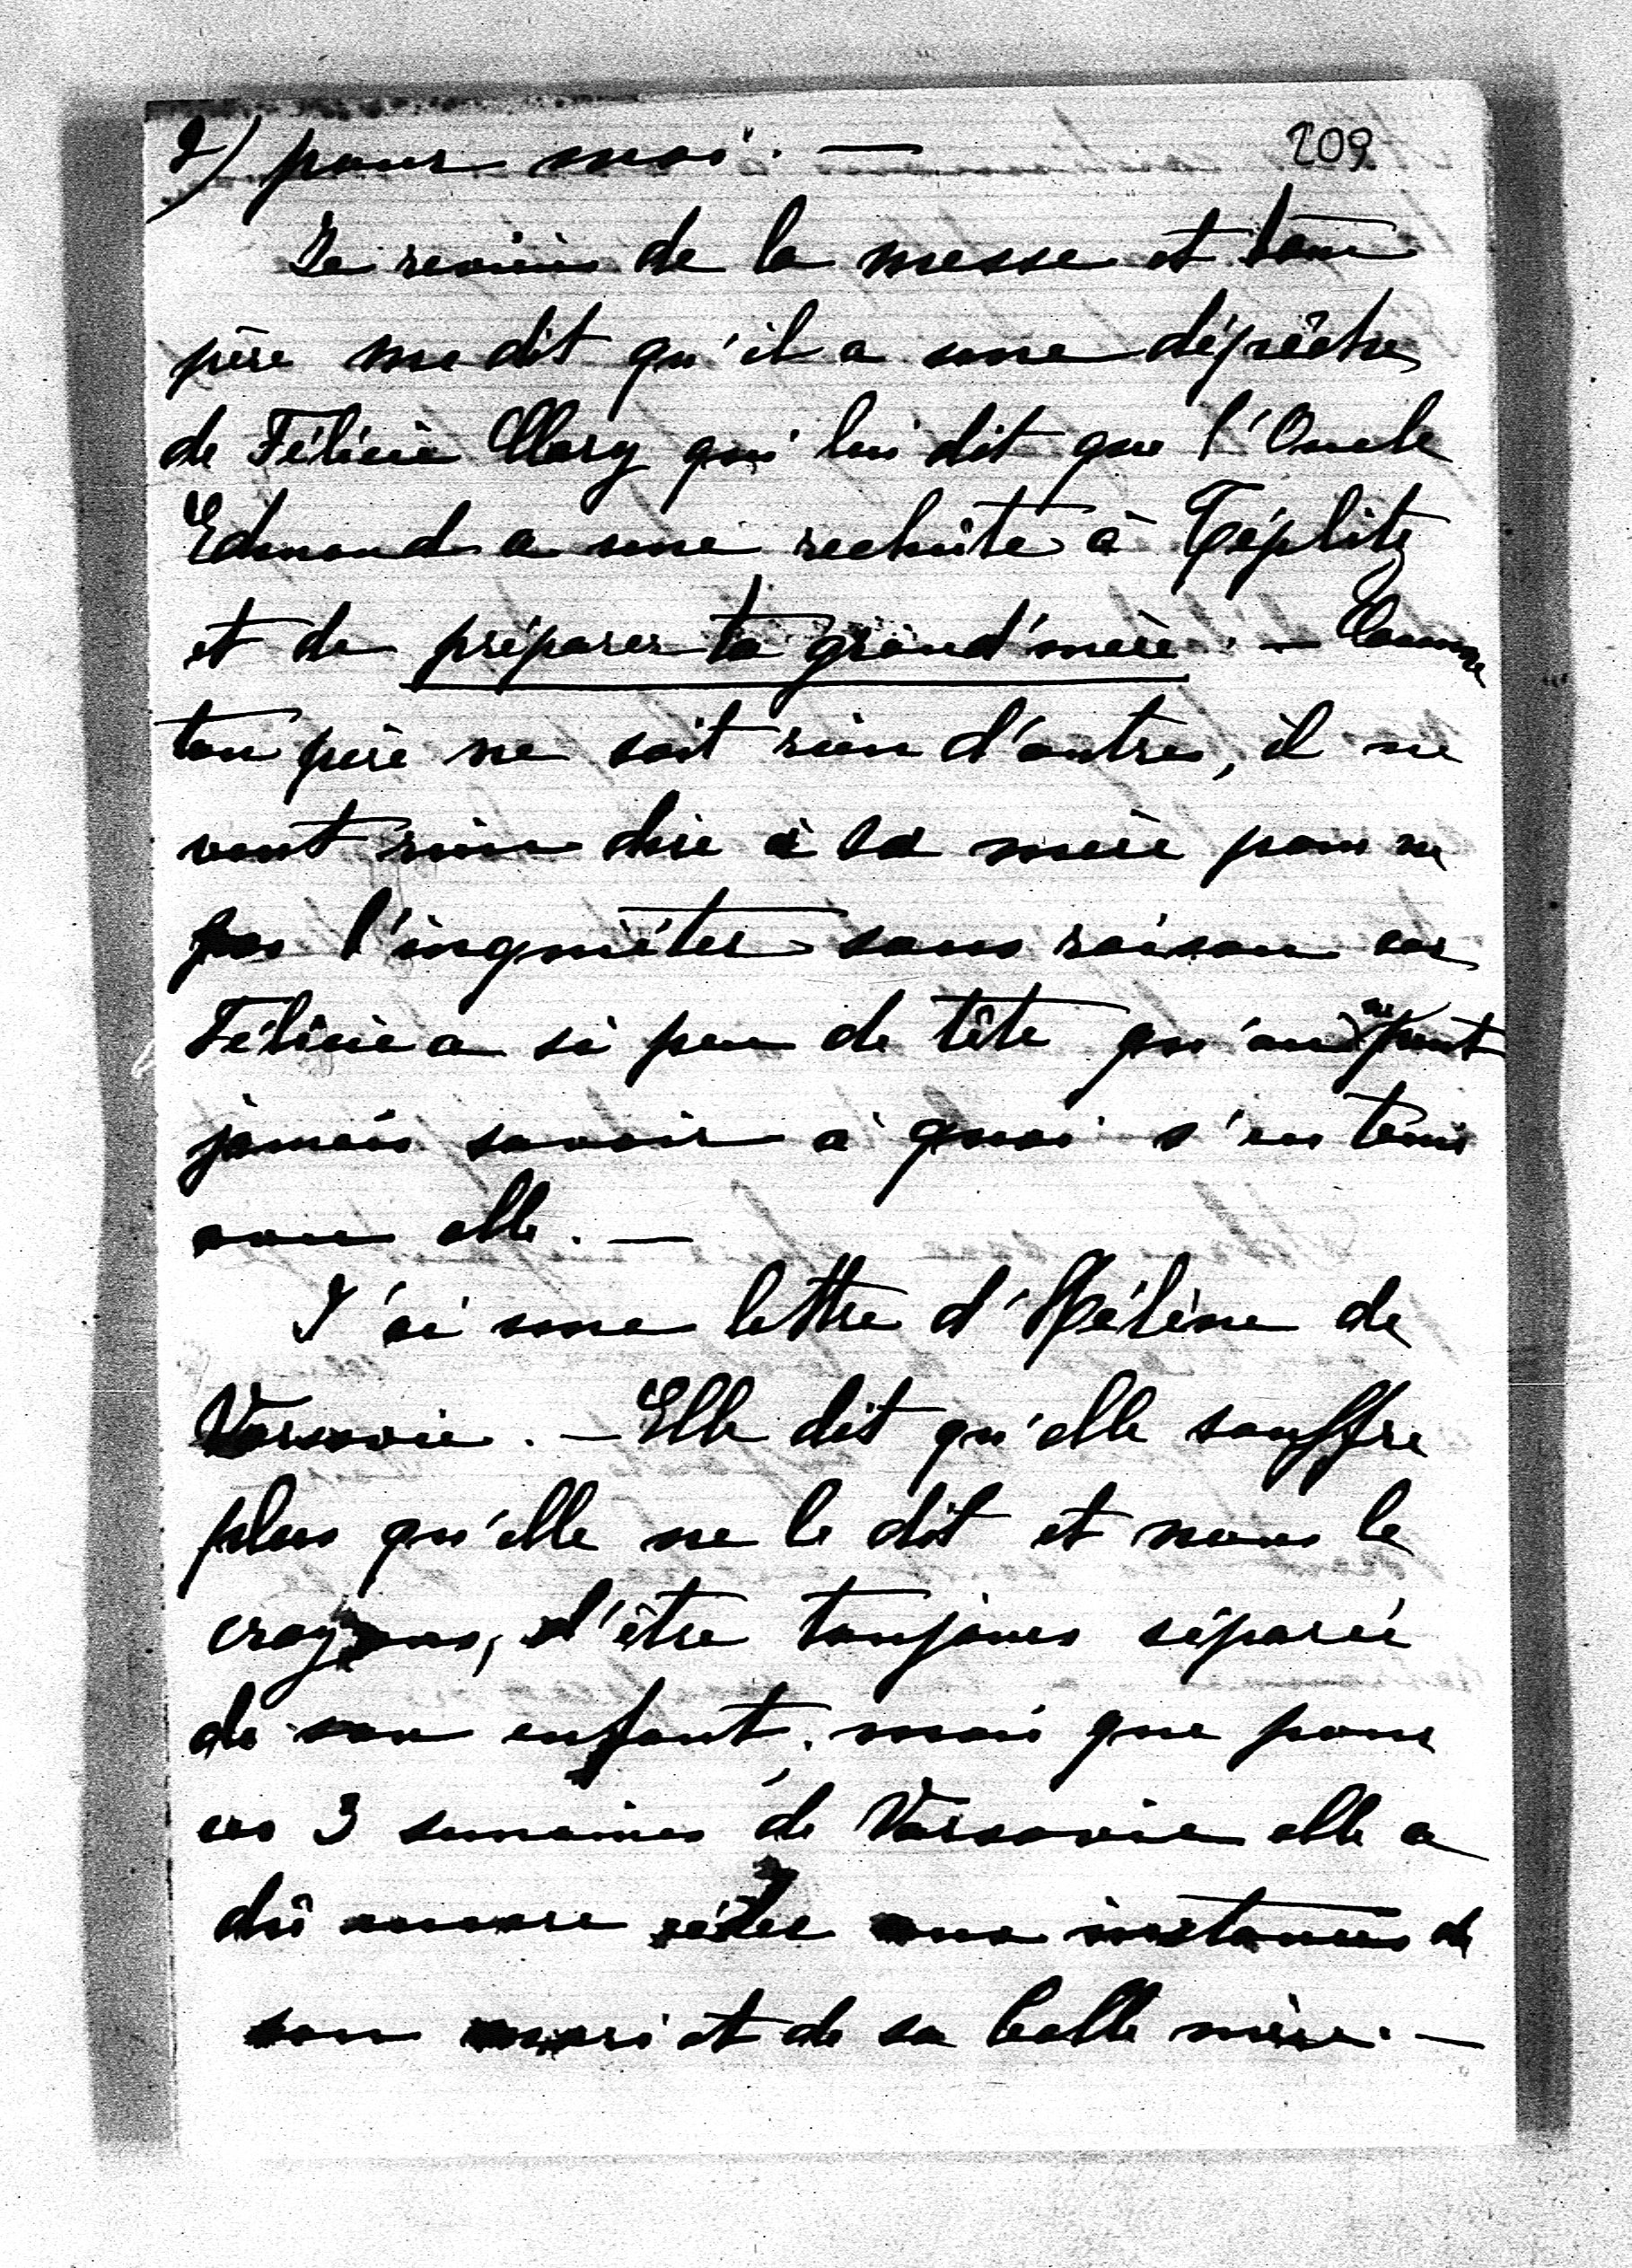 2) pour moi. —
209
Je reviens de la messe et ton
père me dit qu'il a une dépêche
de Félicie Clary qui lui dit que l'Oncle
Edmond a une rechûte à Téplitz
et de préparer ta grand'mère. — Comme
ton père ne sait rien d'autre, il ne
veut rien dire à sa mère pour ne
pas l'inquiéter sans raison car
Félicie a si peu de tête qu'on ne peut
jamais savoir à quoi s'en tenir
avec elle. —
J'ai une lettre d'Hélène de
Varsovie. — Elle dit qu'elle souffre
plus qu'elle ne le dit et nous le
croyons, d'être toujours séparée
de son enfant, mais que pour
ces 3 semaines de Varsovie elle a
dû encore céder aux instances de
son mari et de sa belle mère. —